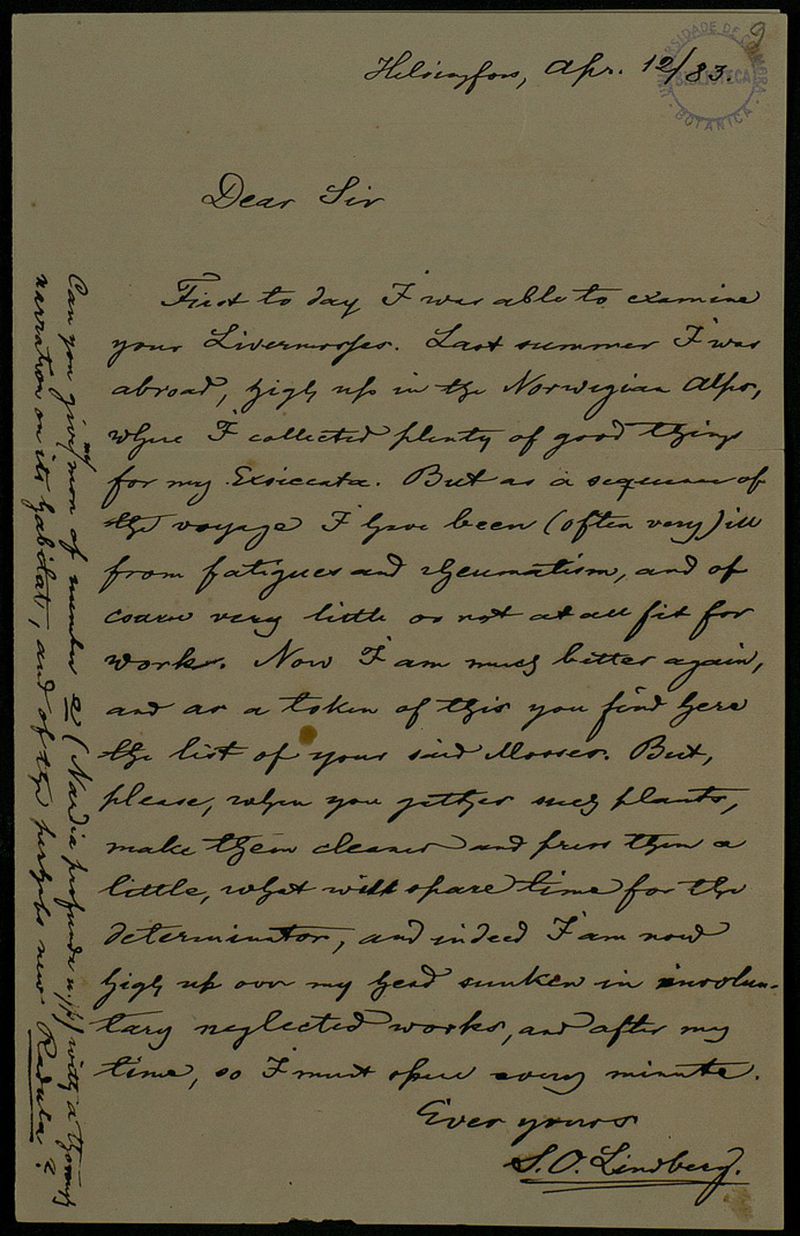 9
UNIVERSIDADE DE COIMBRA
BIBLIOTECA
BOTANICA
Helsingfors, Apr. 12/83.
Dear Sir
First to day I was able to examine
your Livermosses. Last summer I was
abroad, high up in the Norwegian Alps,
where I collected plenty of good things
for my Exsiccata. But as a sequence of
the voyage I have been (often very) ill
from fatigues and rheumatism, and of
course very little or not at all fit for
works. Now I am much better again,
and as a token of this you find here
the list of your said Mosses. But,
please, when you gether such plants,
make them cleaner and press them a
little, what will spare time for the
determinator, and indeed I am now
high up over my head sunken in involun-
tary neglected works, and after my
time, so I must spare every minute.
Ever yours
S. O. Lindberg.
Can you give my mor of number 2 (Nardia profunda n. sp.) with a thorough
narration on its habitat, and of the perhaps new Radula?